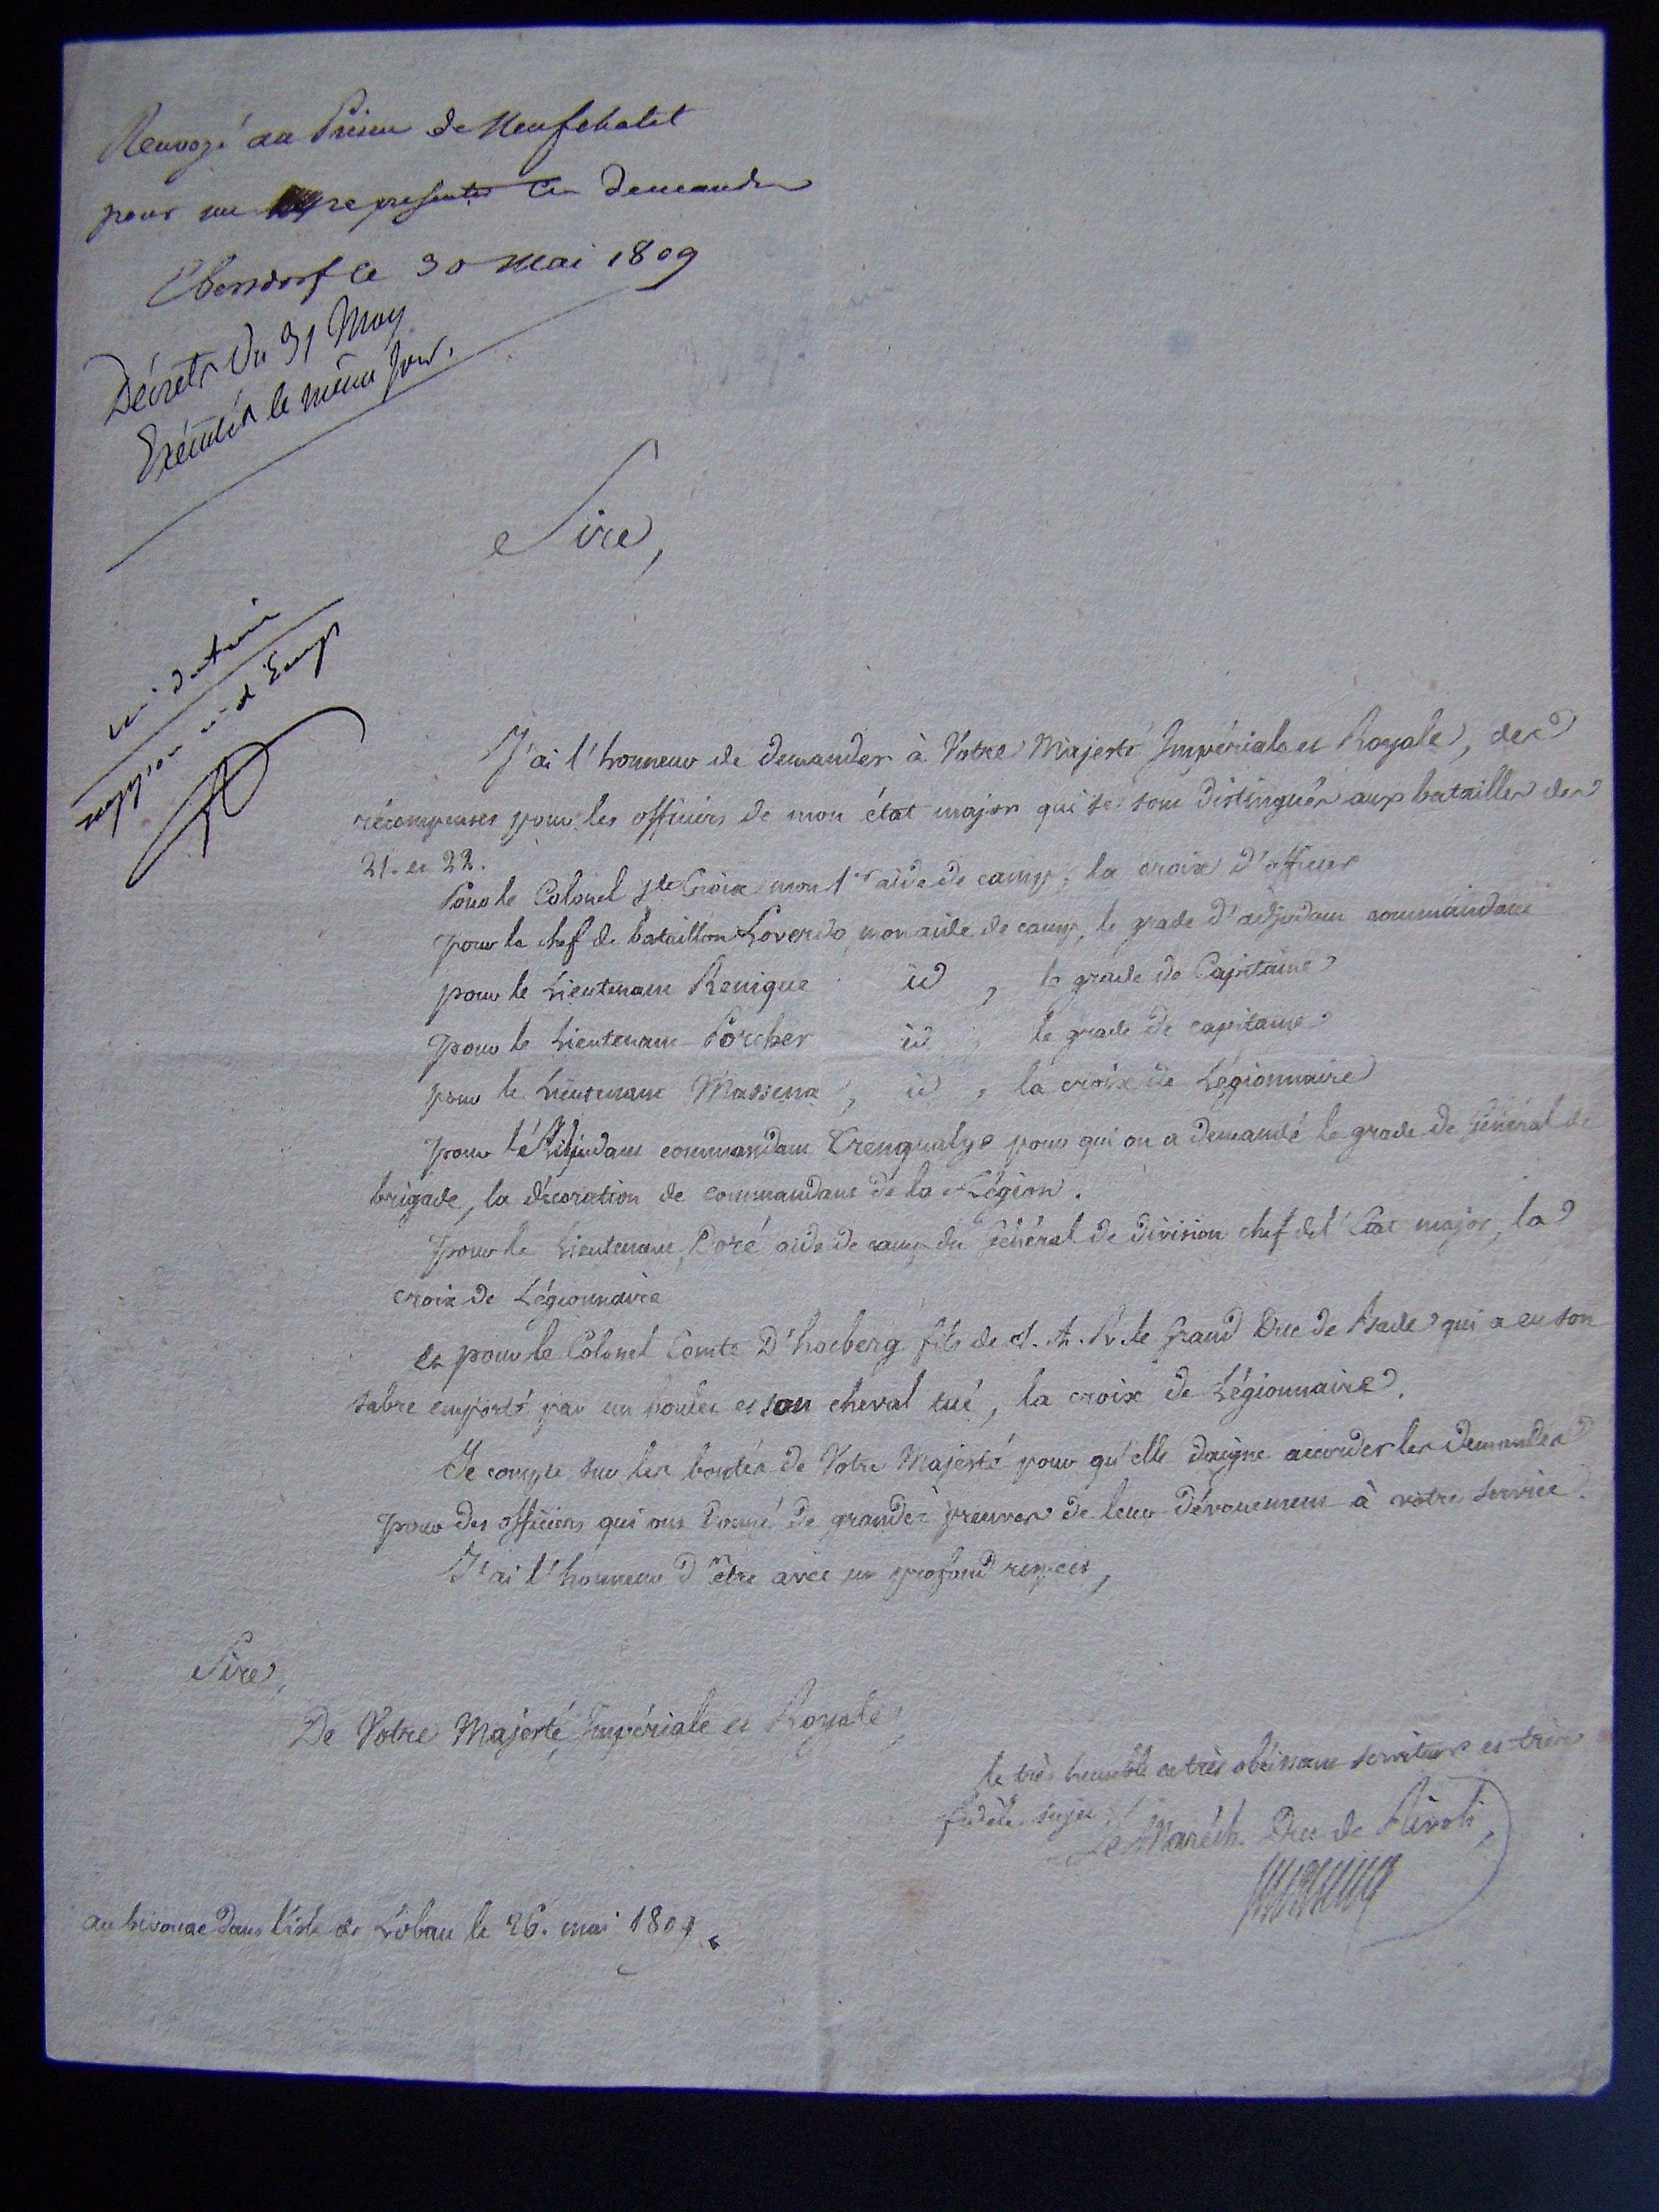 Renvoyé au Prince de Neufchatel
pour me representer ces demandes
Ebersdorf le 30 Mai 1809
Décrets du 31 May
Exécutés le même jour.
Sire,
J'ai l'honneur de demander à Votre Majesté Impériale et Royale, des
récompenses pour les officiers de mon état major qui se sont distingués aux batailles des
21. et 22.
Pour le Colonel Ste Croix mon 1er aide de camp, la croix d'officier
pour le chef de bataillon Loverdo, mon aide de camp, le grade d'adjudant commandant
pour le Lieutenant Renique id, le grade de Capitaine
pour le Lieutenant Porcher id, le grade de capitaine
pour le Lieutenant Massena, id, la croix de Légionnaire
pour l'Adjudant commandant Trenqualye pour qui on a demandé le grade de Général de
brigade, la décoration de commandant de la Légion.
pour le Lieutenant Doré aide de camp du Général de division chef de l'Etat major, la
croix de Légionnaire
et pour le Colonel Comte D'hocberg fils de S. A. R. le Grand Duc de Bade qui a eu son
sabre emporté par un boulet et son cheval tué, la croix de Légionnaire.
Je compte sur les bontés de Votre Majesté pour qu'elle daigne accorder les demandes
pour des officiers qui ont donné de grandes preuves de leur dévouement à votre service.
J'ai l'honneur d'être avec un profond respect,
Sire,
De Votre Majesté Impériale et Royale,
le très humble et très obéissant serviteur et très
fidèle sujet
Le Maréch. Duc de Rivoli,
Massena
au bivouac dans l'isle de Lobau le 26. mai 1809.